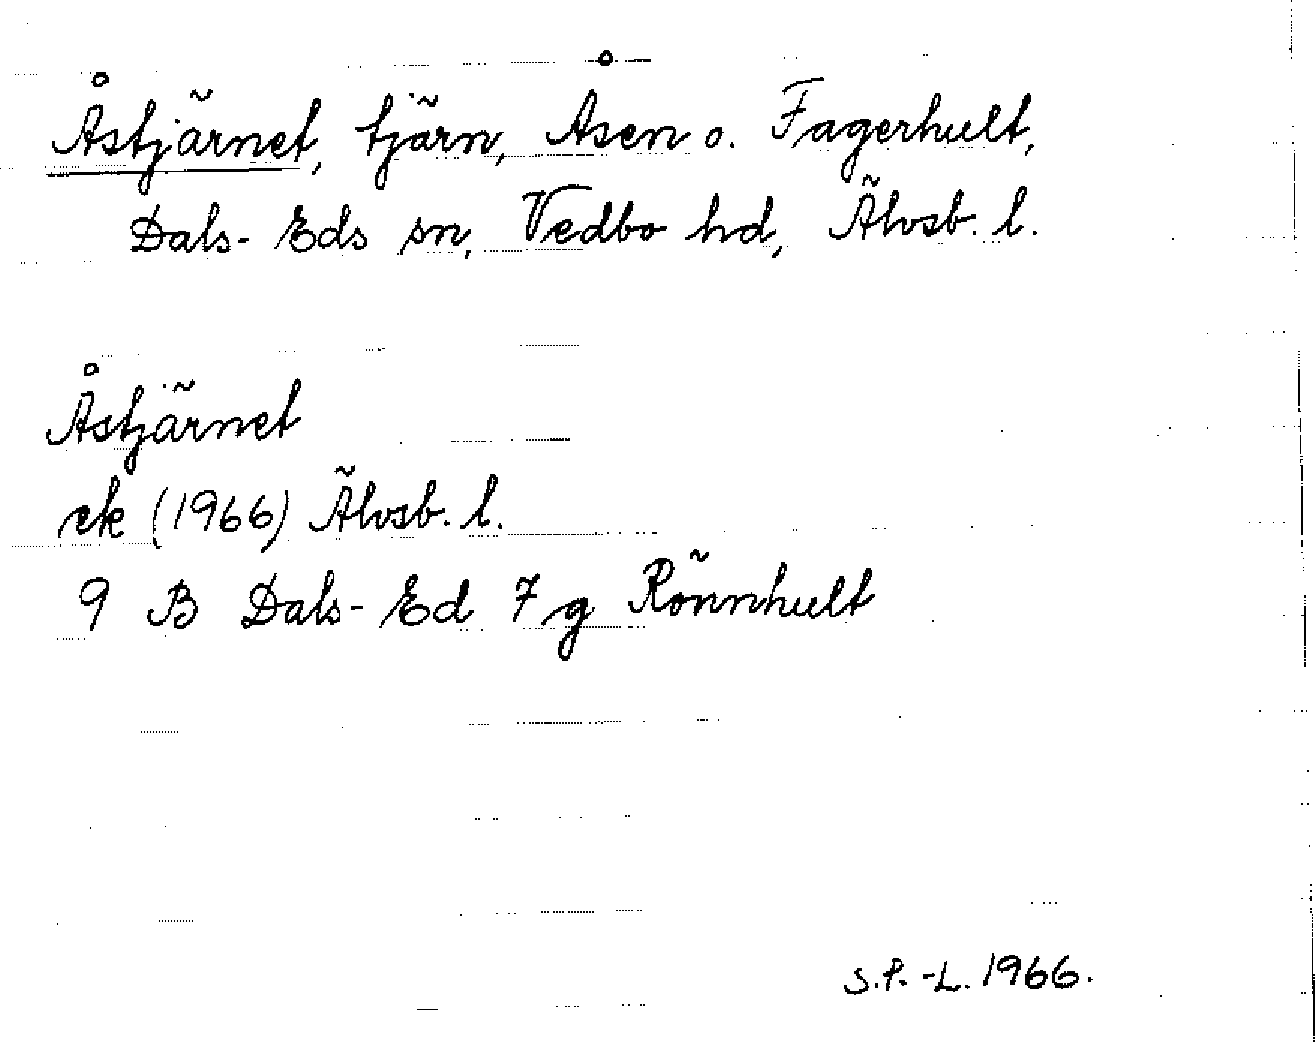 Åstjärnet, tjärn, Åsen o. Fagerhult,
Dals-Eds sn, Vedbo hd, Älvsb. l.
Åstjärnet
ek (1966) Älvsb. l.
9 B Dals-Ed 7 g Rönnhult
S.P.-L. 1966.